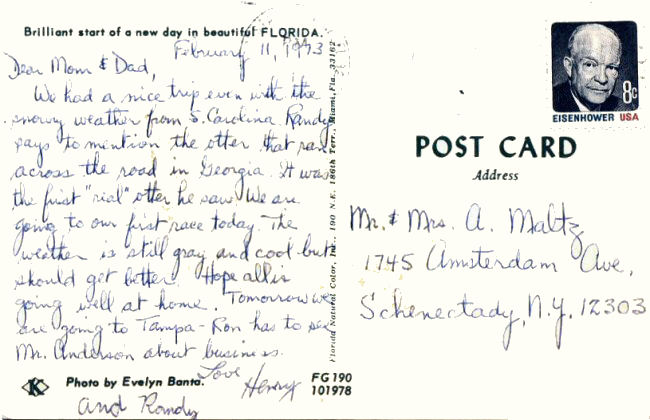 Brilliant start of a new day in beautiful FLORIDA.
February 11, 1973
Dear Mom & Dad,
We had a nice trip even with the
snowy weather from S. Carolina Randy
says to mention the otter that ran
across the road in Georgia. It was
the first "rial" otter he saw. We are
going to our first race today. The
weather is still gray and cool but
should get better. Hope all is
going well at home. Tomorrow we
are going to Tampa - Ron has to see
Mr. Anderson about business.
Love
Henry
and Randy
K
Photo by Evelyn Banta.
FG 190
101978
Florida Natural Color, Inc., 190 N.E. 186th Terr., Miami, Fla. 33162
8c
EISENHOWER USA
POST CARD
Address
Mr. & Mrs. A. Maltz
1745 Amsterdam Ave.
Schenectady, N.Y. 12303